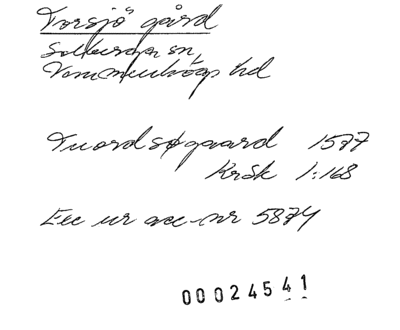 Torsjö gård
Solberga sn,
Vemmenhögs hd
Tuordsøgaard 1577
KrSk 1:168
Exc ur acc-nr 5874
00024541